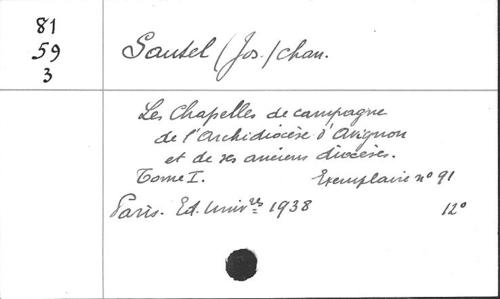 81
59
3
Sautel (Jos.) chan.
Les Chapelles de campagne
de l'Archidiocèse d'Avignon
et de ses anciens diocèses.
Tome I. Exemplaire nº 91
Paris. Ed. Univres 1938 12º